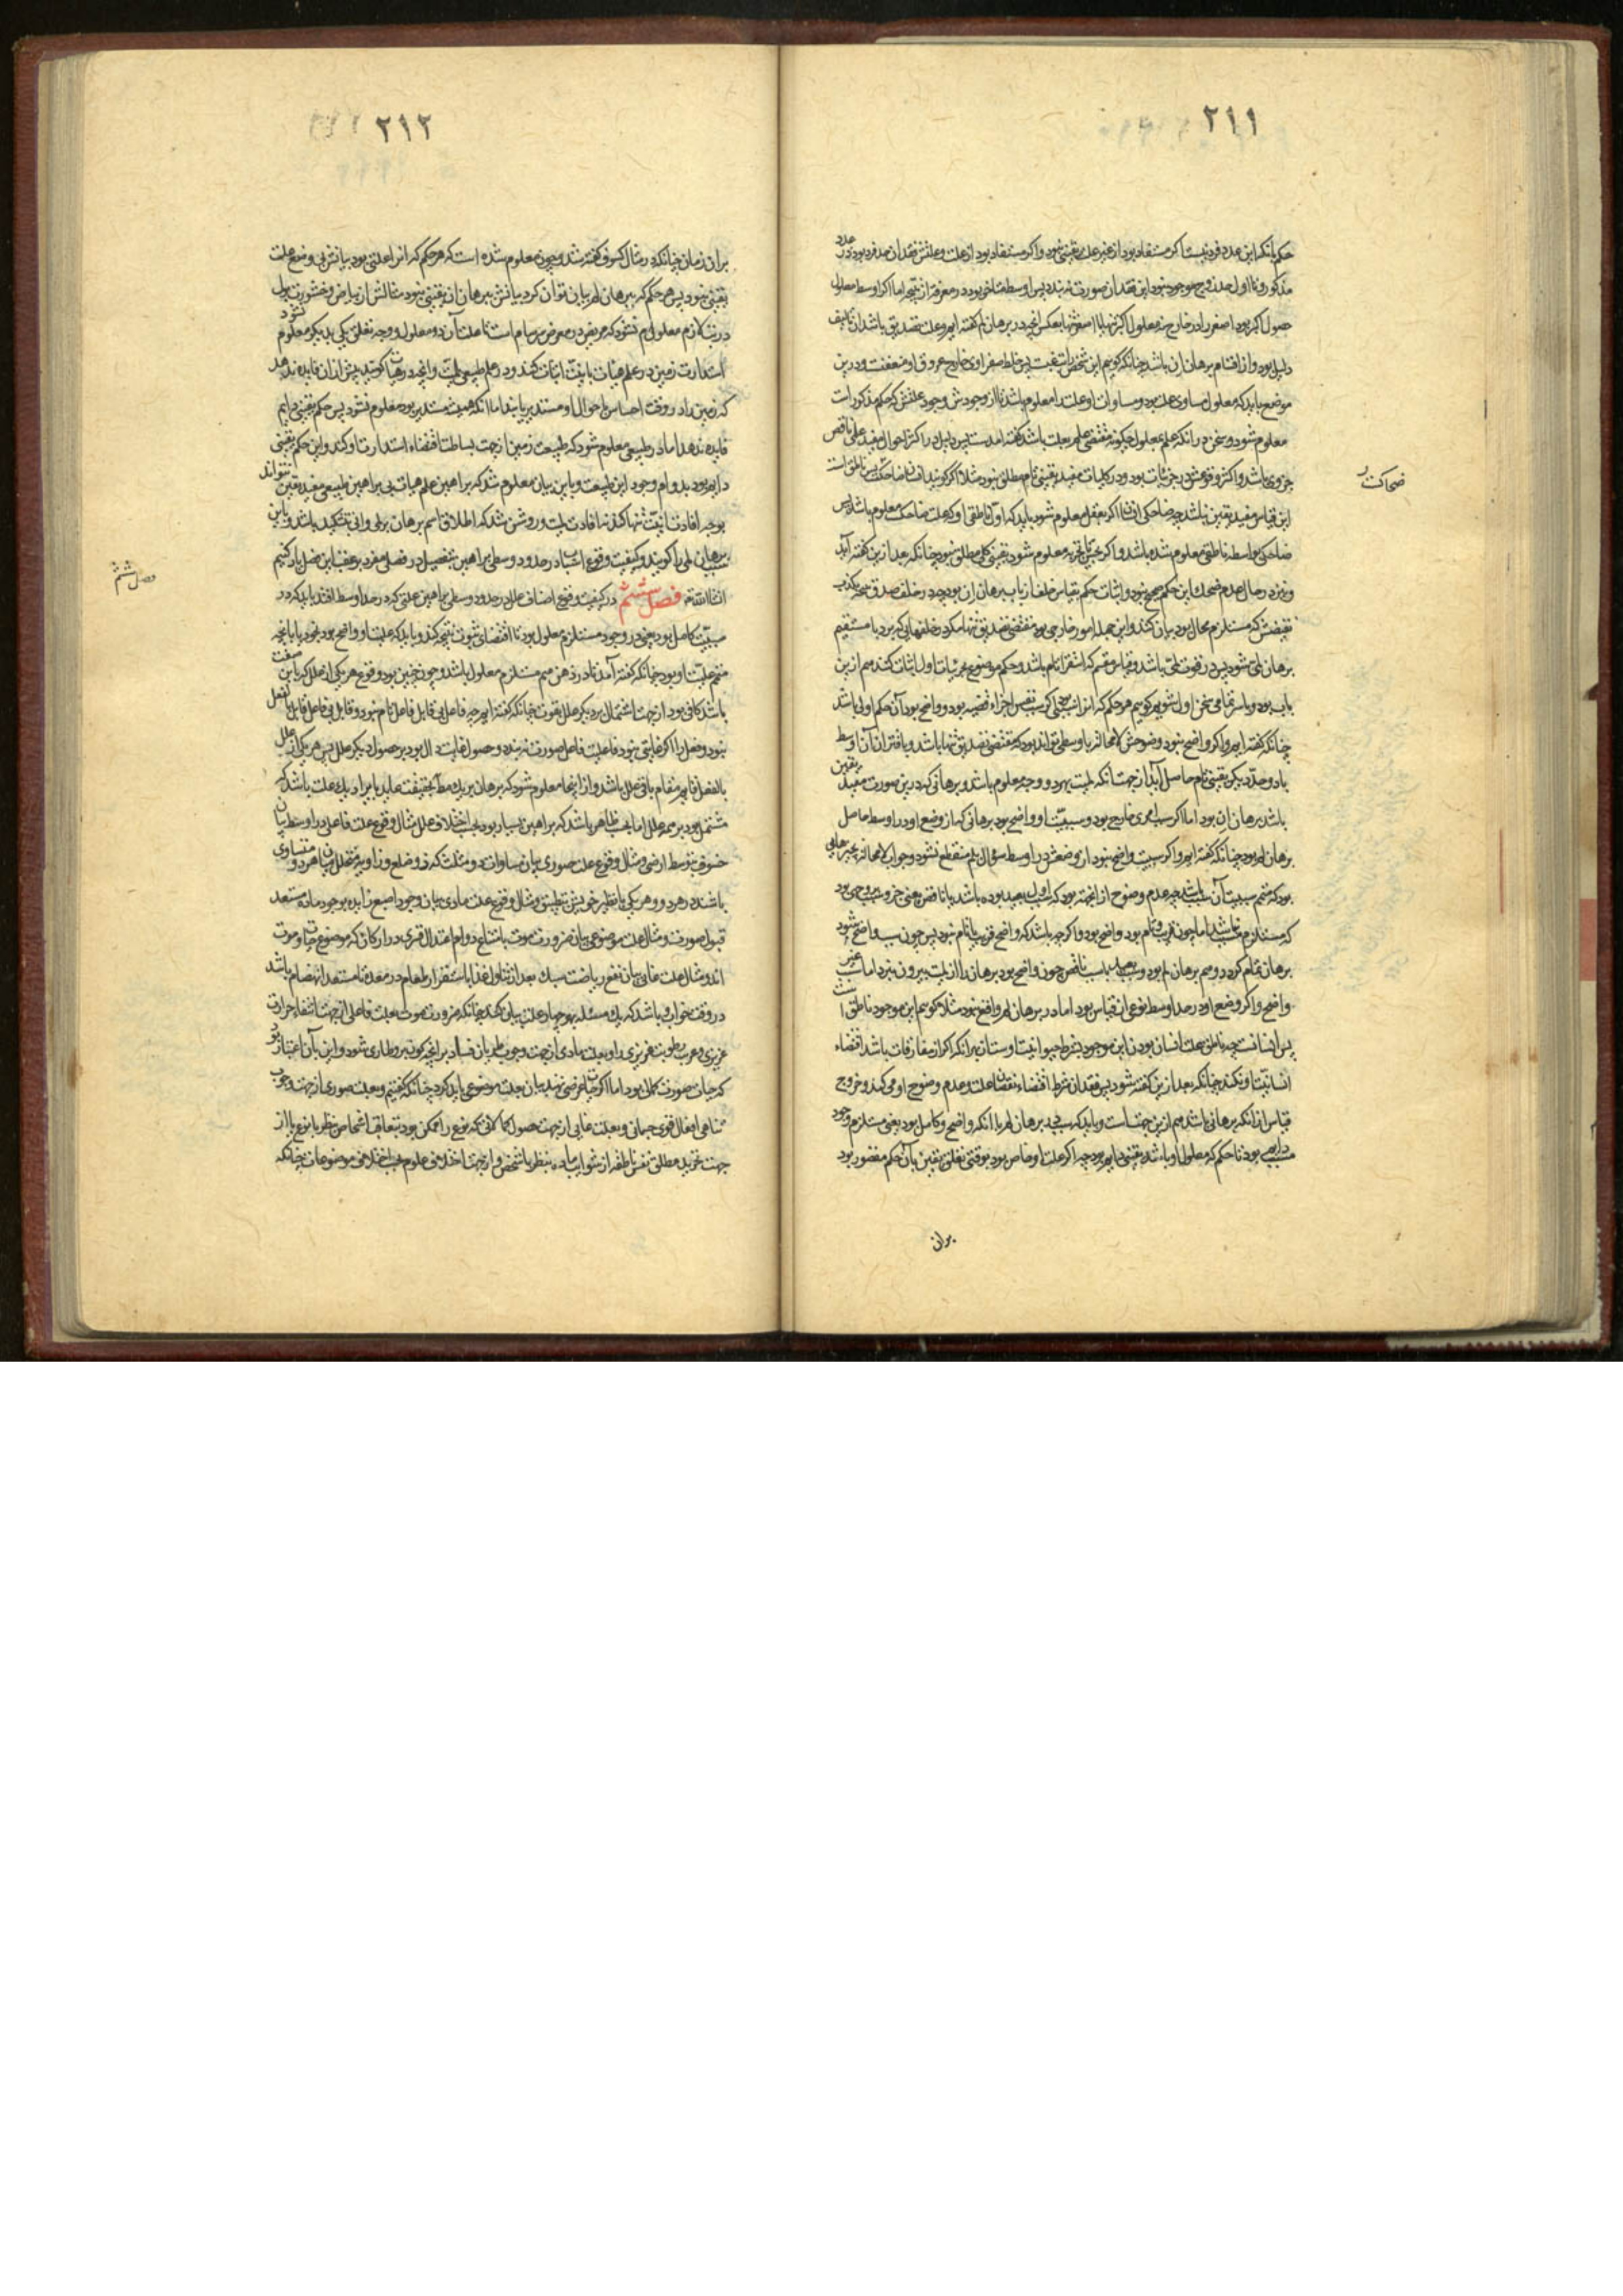 ٢١١
حکم بانکه این عدد فرد نیست اگر مستفاد بود از غیر علت یقینی نبود و اگر مستفاد بود از علت و علتش فقدان عدد فرد بود در
مذکور و تا اول عدد زوج موجود نبود این فقدان صورت نبندد پس اوسط مقتضی بود در معرفة از نتیجه اما اگر اوسط معلول
حصول اکبر بود اصغر را در خارج نه معلول اکبر تنها یا اصغر تنها بعکس آنچه در برهان لم گفته ایم و علت تصدیق باشد آن تالیف
دلیل بود و از اقسام برهان ان باشد چنانکه گوییم این شخص را تب غب است پس خلط صفراوی خارج عروق او متعفنست و درین
موضع باید که معلول مساوی علت بود و مساوات او علت را معلوم باشد تا از وجودش وجود علتش که حکم مذکور است
معلوم شود و سخن در آنکه علم بمعلول چگونه مقتضی علم بعلت باشد گفته آمده است پس دلیل در اکثر احوال مفید علمی ناقص
جزوی باشد و اکثر وقوعش در جزئیات بود و در کلیات مفید یقینی تام مطلق نبود مثلا اگر گویند انسان ضاحکست پس ناطق است
ضحاکست
این قیاس مفید یقین نباشد چه ضاحکی انسان را اگر بعقل معلوم شود باید که اولا ناطقی او که علت ضاحکست معلوم باشد پس
ضاحکی بواسطه ناطقی معلوم شده باشد و اگر بحس یا تجربه معلوم شود یقینی کلی مطلق نبود چنانکه بعد ازین گفته آید
و نیز در حال عدم ضحک این حکم صحیح نبود و اثبات حکم بقیاس خلف از باب برهان ان بود چه در خلف صدق نتیجه بکذب
نقیضش که مستلزم محال بود بیان کنند و این جمله امور خارجی بود مقتضی تصدیق تنها مگر در خلفهایی که برد با مستقیم
برهان لمی شود پس در قوت لمی باشد و قیاس مقسم که استقراء تام باشد و حکم موضوع بجزئیات او اثبات کند هم ازین
باب بود و با سر تمامی سخن اول شویم گوییم هر حکم که آنرا سببی اگر سبب نفس اجزاء قضیه بود و واضح بود آن حکم اولی باشد
چنانکه گفته ایم و اگر واضح نبود وضوحش لا محاله یا بوسطی تواند بود که مقتضی تصدیق تنها باشد و باقتران آن اوسط
با دو حد دیگر یقینی تام حاصل آید از جهت آنکه لمیت بهر دو وجه معلوم باشد و برهانی که درین صورت مفید یقین
باشد برهان ان بود اما اگر سبب امری خارج بود و سببیت او واضح بود برهانی که از وضع او در اوسط حاصل
برهان لم بود چنانکه گفته ایم و اگر سببیت واضح نبود از وضعش در اوسط سؤال بلم منقطع نشود و جواب لا محاله بچیزهایی
بود که متمم سببیت آن سبب باشد چه عدم وضوح از آنجهت بود که اول سبب بعید بوده باشد یا ناقص یعنی جزو سبب و چیزی بود
که مستلزم مسبب نباشد اما چون قریب و تام بود واضح بود و اگر چه باشد که واضح قریب یا تام نبود پس چون سبب واضح شود
برهان تمام گردد و هم برهان لم بود و سبب بعید یا سبب ناقص چون واضح بود برهان را از لمیت بیرون نبرد اما سبب غیر
واضح و اگر وضع او در حد اوسط نوعی از قیاس بود اما در برهان لم واقع نبود مثلا گوییم این موجود ناطق است
پس انسانست چه ناطق علت انسان بودن این موجود بشرط حیوانیت اوست از برای آنکه اگر از مفارقات باشد اقتضاء
انسانیت او نکند چنانکه بعد ازین گفته شود پس فقدان شرط اقتضاء نقصان علت و عدم وضوح او می کند و خروج
قیاس از آنکه برهانی باشد هم ازین جهت است و باید که سببی در برهان لم با آنکه واضح و کامل بود یعنی مستلزم وجود
مسبب دایمی بود تا حکم که معلول او باشد یقینی دایم بود چه اگر علت او خاص بود بوقتی تعلق یقین بآن حکم مقصور بود
بران
٢١٢
بران زمان چنانکه در مثال کسوف گفته شد و چون معلوم شده است که هر حکم که آنرا علتی بود بیانش بی وضع علت
یقینی نبود پس هر حکم که ببرهان لم بیان توان کرد بیانش ببرهان ان یقینی نبود مثالش از بیاض و خثورت بول
در تب لازم معلوم نشود که مریض در معرض سرسام است تا علت آن دو معلول و وجه تعلق یکی بدیگر معلوم نشود
استدارت زمین در علم هیات بانیت اثبات کنند و در علم طبیعی بلمیت و آنچه در هیات گویند بیش از آن فایده ندهد
که زمین را در وقت احساس باحوال او مستدیر یابند اما آنکه همیشه مستدیر بود معلوم نشود پس حکم یقینی دایم
فایده ندهد اما در طبیعی معلوم شود که طبیعت زمین از جهت بساطت اقتضاء استدارت او کند و این حکم یقینی
دایم بود بدوام وجود این طبیعت و باین بیان معلوم شد که براهین علم هیات بی براهین طبیعی مفید یقین نتواند
بود چه افادت انیت تنها کند نه افادت لمیت و روشن شد که اطلاق اسم برهان بر لمی و انی بتشکیک باشد و باین
سبب برهان لمی را گویند و کیفیت وقوع اسباب در حدود وسطی براهین بتفصیل در فصلی مفرد بر عقب این فصل یاد کنیم
انشاالله تعه فصل ششم در کیفیت وقوع اصناف علل در حدود وسطی براهین علتی که در حد اوسط افتد باید که در
فصل ششم
سببیت کامل بود یعنی در وجود مستلزم معلول بود تا اقتضای ثبوت نتیجه کند و باید که علیت او واضح بود بخود یا بآنچه
متمم علیت او بود چنانکه گفته آمد تا در ذهن هم مستلزم معلول باشد و چون چنین بود وقوع هر یکی از علل که باین صفت
باشد کافی بود از جهت اشتمال بر دیگر علل بقوت چنانکه گفته ایم چه فاعل بی قابل فاعل تام نبود و قابل بی فاعل قابل بفعل
نبود و فصل را اگر غایتی نبود فاعلیت فاعل صورت نبندد و حصول غایت دال بود بر حصول دیگر علل پس هر یکی از علل
بالفعل قایم مقام باقی علل باشد و از اینجا معلوم شود که برهان بر یک مطلوب بحقیقت عاید با ایراد یک علت باشد که
مشتمل بود بر همه علل اما بحسب ظاهر باشد که براهین بسیار بود بحسب اختلاف علل مثال وقوع علت فاعلی در اوسط بیان
خسوف بتوسط ارض و مثال وقوع علت صوری بیان مساوات دو مثلث که دو ضلع و زاویه متخلل میان هر دو متساوی
باشند در هر دو و هر یکی با نظیر خویش بتطبیق و مثال وقوع علت مادی بیان وجود اصبع زایده بوجود ماده مستعد
قبول صورت و مثال علت موضوعی بیان ضرورت موت بامتناع دوام اعتدال قسری در ارکان که موضوع حیات و موت
اند و مثال علت غائی بیان نفع ریاضت سبک بعد از تناول غذا باستقرار طعام در معده تا مستعد انهضام باشد
در وقت خواب و باشد که یک مسئله بهر چهار علت بیان کند چنانکه ضرورت موت بعلت فاعلی از جهت انتفاء حرارت
غریزی و عرب رطوبت غریزی را و بعلت مادی از جهت وجوب طریان فساد بر آنچه کون برو طاری شود و این بآن اعتبار بود
که حیات صورت کمالی بود اما اگر حیات عرضی نهند بیان بعلت موضوعی باید کرد چنانکه گفتیم و بعلت صوری از جهت وجوب
تناهی افعال قوی جسمانی و بعلت غایی از جهت حصول کمالاتی که نوع را ممکن بود بتعاقب اشخاص بنظر با نوع یا از
جهت تجرید مطلق نفس ناطقه از شوایب ماده بنظر با شخص و از جهت اختلاف علوم بحسب اختلاف موضوعات چنانکه